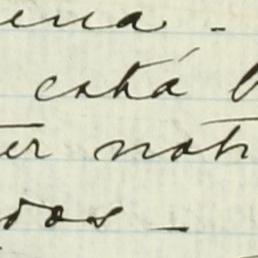 ena -
está b
er noti
dos -